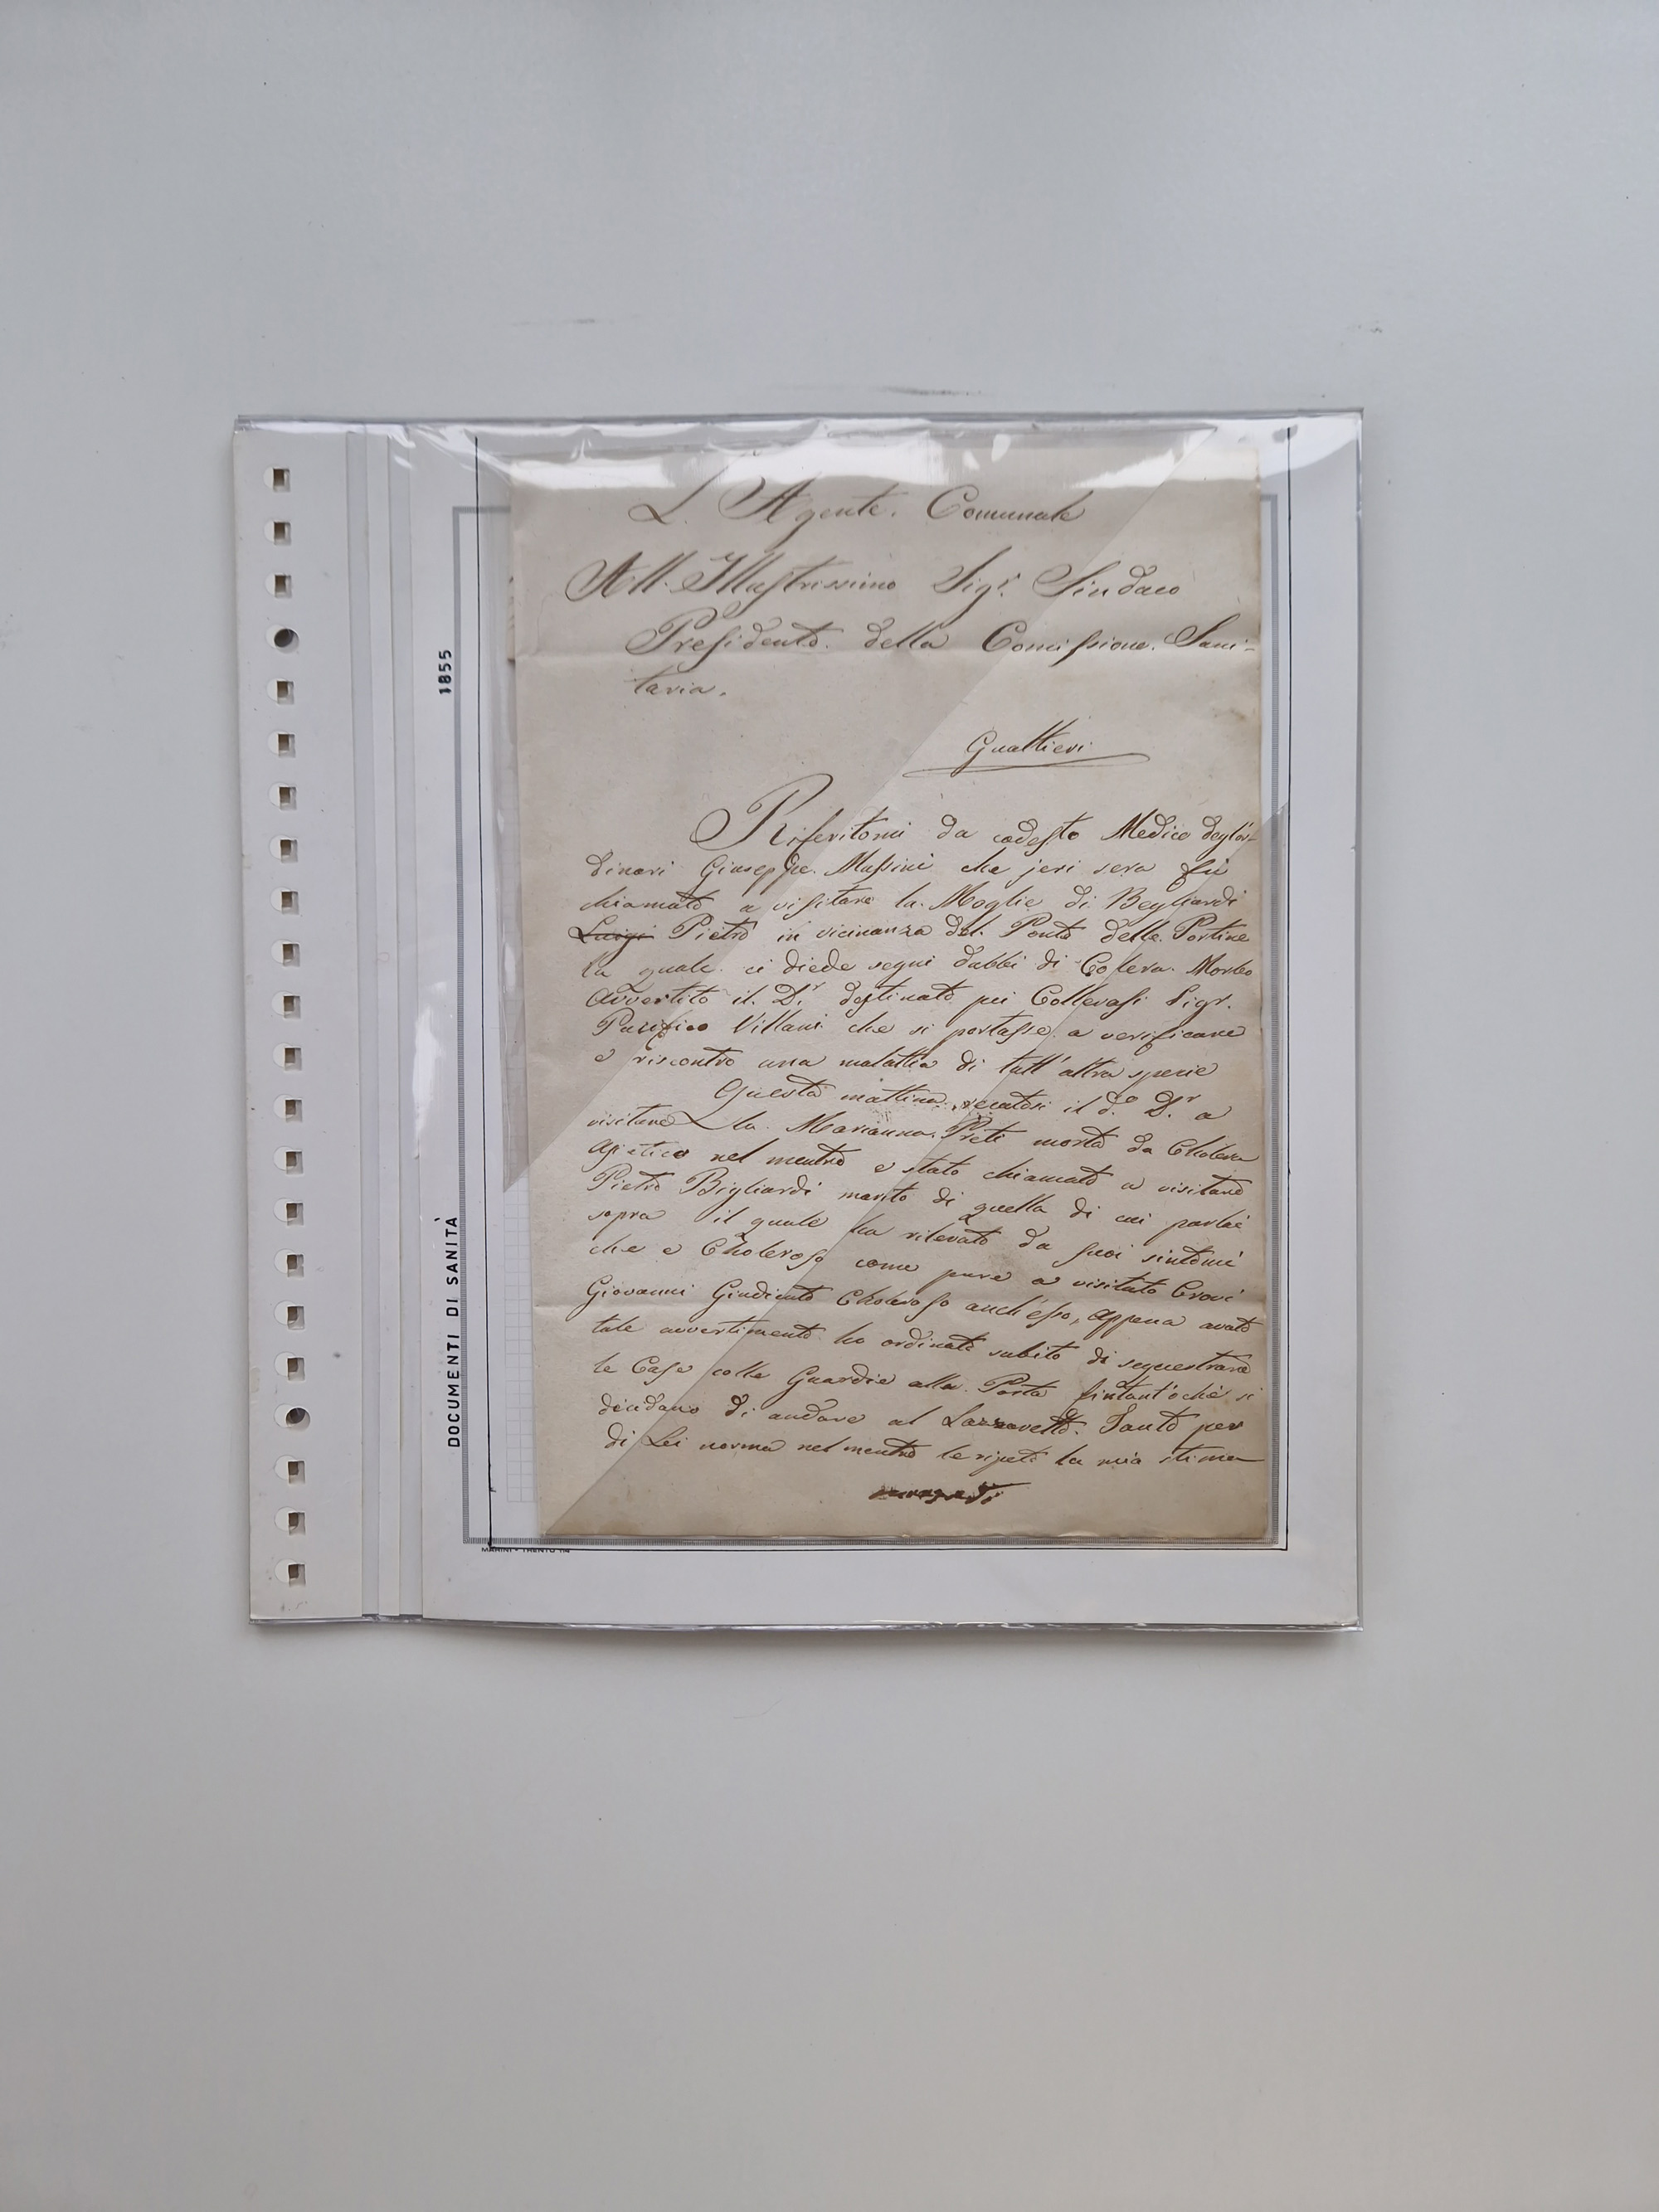 1855
DOCUMENTI DI SANITÀ
L'Agente Comunale
All'Illustrissimo Sigr. Sindaco
Presidente della Comissione Sani-
taria.
Gualtieri
Riferitomi da codesto Medico degl'or-
dinari Giuseppe Massini che jeri sera fù
chiamato a visitare la Moglie di Begliardi
Luigi Pietro in vicinanza del Ponte delle Portine
la quale ci diede segni dubbi di Colera Morbo
Avvertito il Dr. destinato pei Collerosi Sigr.
Villani che si portasse a verificare
e riscontro una malattia di tutt'altra specie
Questa mattina recatosi il do. Dr. a
visitare la Marianna Preti morta da Cholera
nel mentre e stato chiamato a visitare
Pietro Bigliardi marito di quella di cui parlai
sopra il quale ha rilevato da suoi sintomi
che e Choleroso come pure a visitato Crovi
Giovanni Choleroso anch'esso, appena avuto
tale avvertimento ho ordinato subito di sequestrare
le Case colle Guardie alla Porta fintant'ochè si
decidano di andare al Lazzaretto. Tanto per
di Lei norma nel mentre le ripeto la mia stima
MARINI - TRENTO